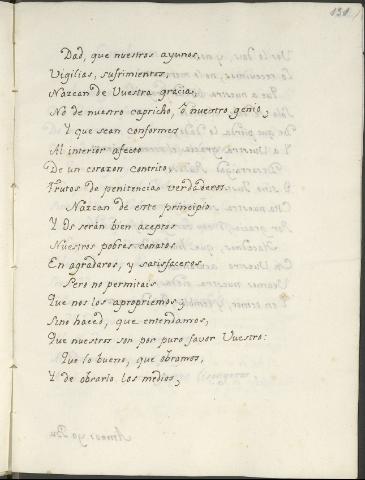 131
Dad, que nuestros ayunos,
Vigilias, sufrimientos,
Nazcan de Vuestra gracia,
No de nuestro capricho, ò nuestro genio;
Y que sean conformes
Al interior afecto
De un corazon contrito,
Frutos de penitencias verdaderos.
Nazcan de este principio
Y os serán bien aceptos
Nuestros pobres conatos
En agradaros, y satisfaceros.
Pero no permitais
Que nos los apropiemos;
Sino haced, que entendamos,
Que nuestros son por puro favor Vuestro:
Que lo bueno, que obramos,
Y de obrarlo los medios,